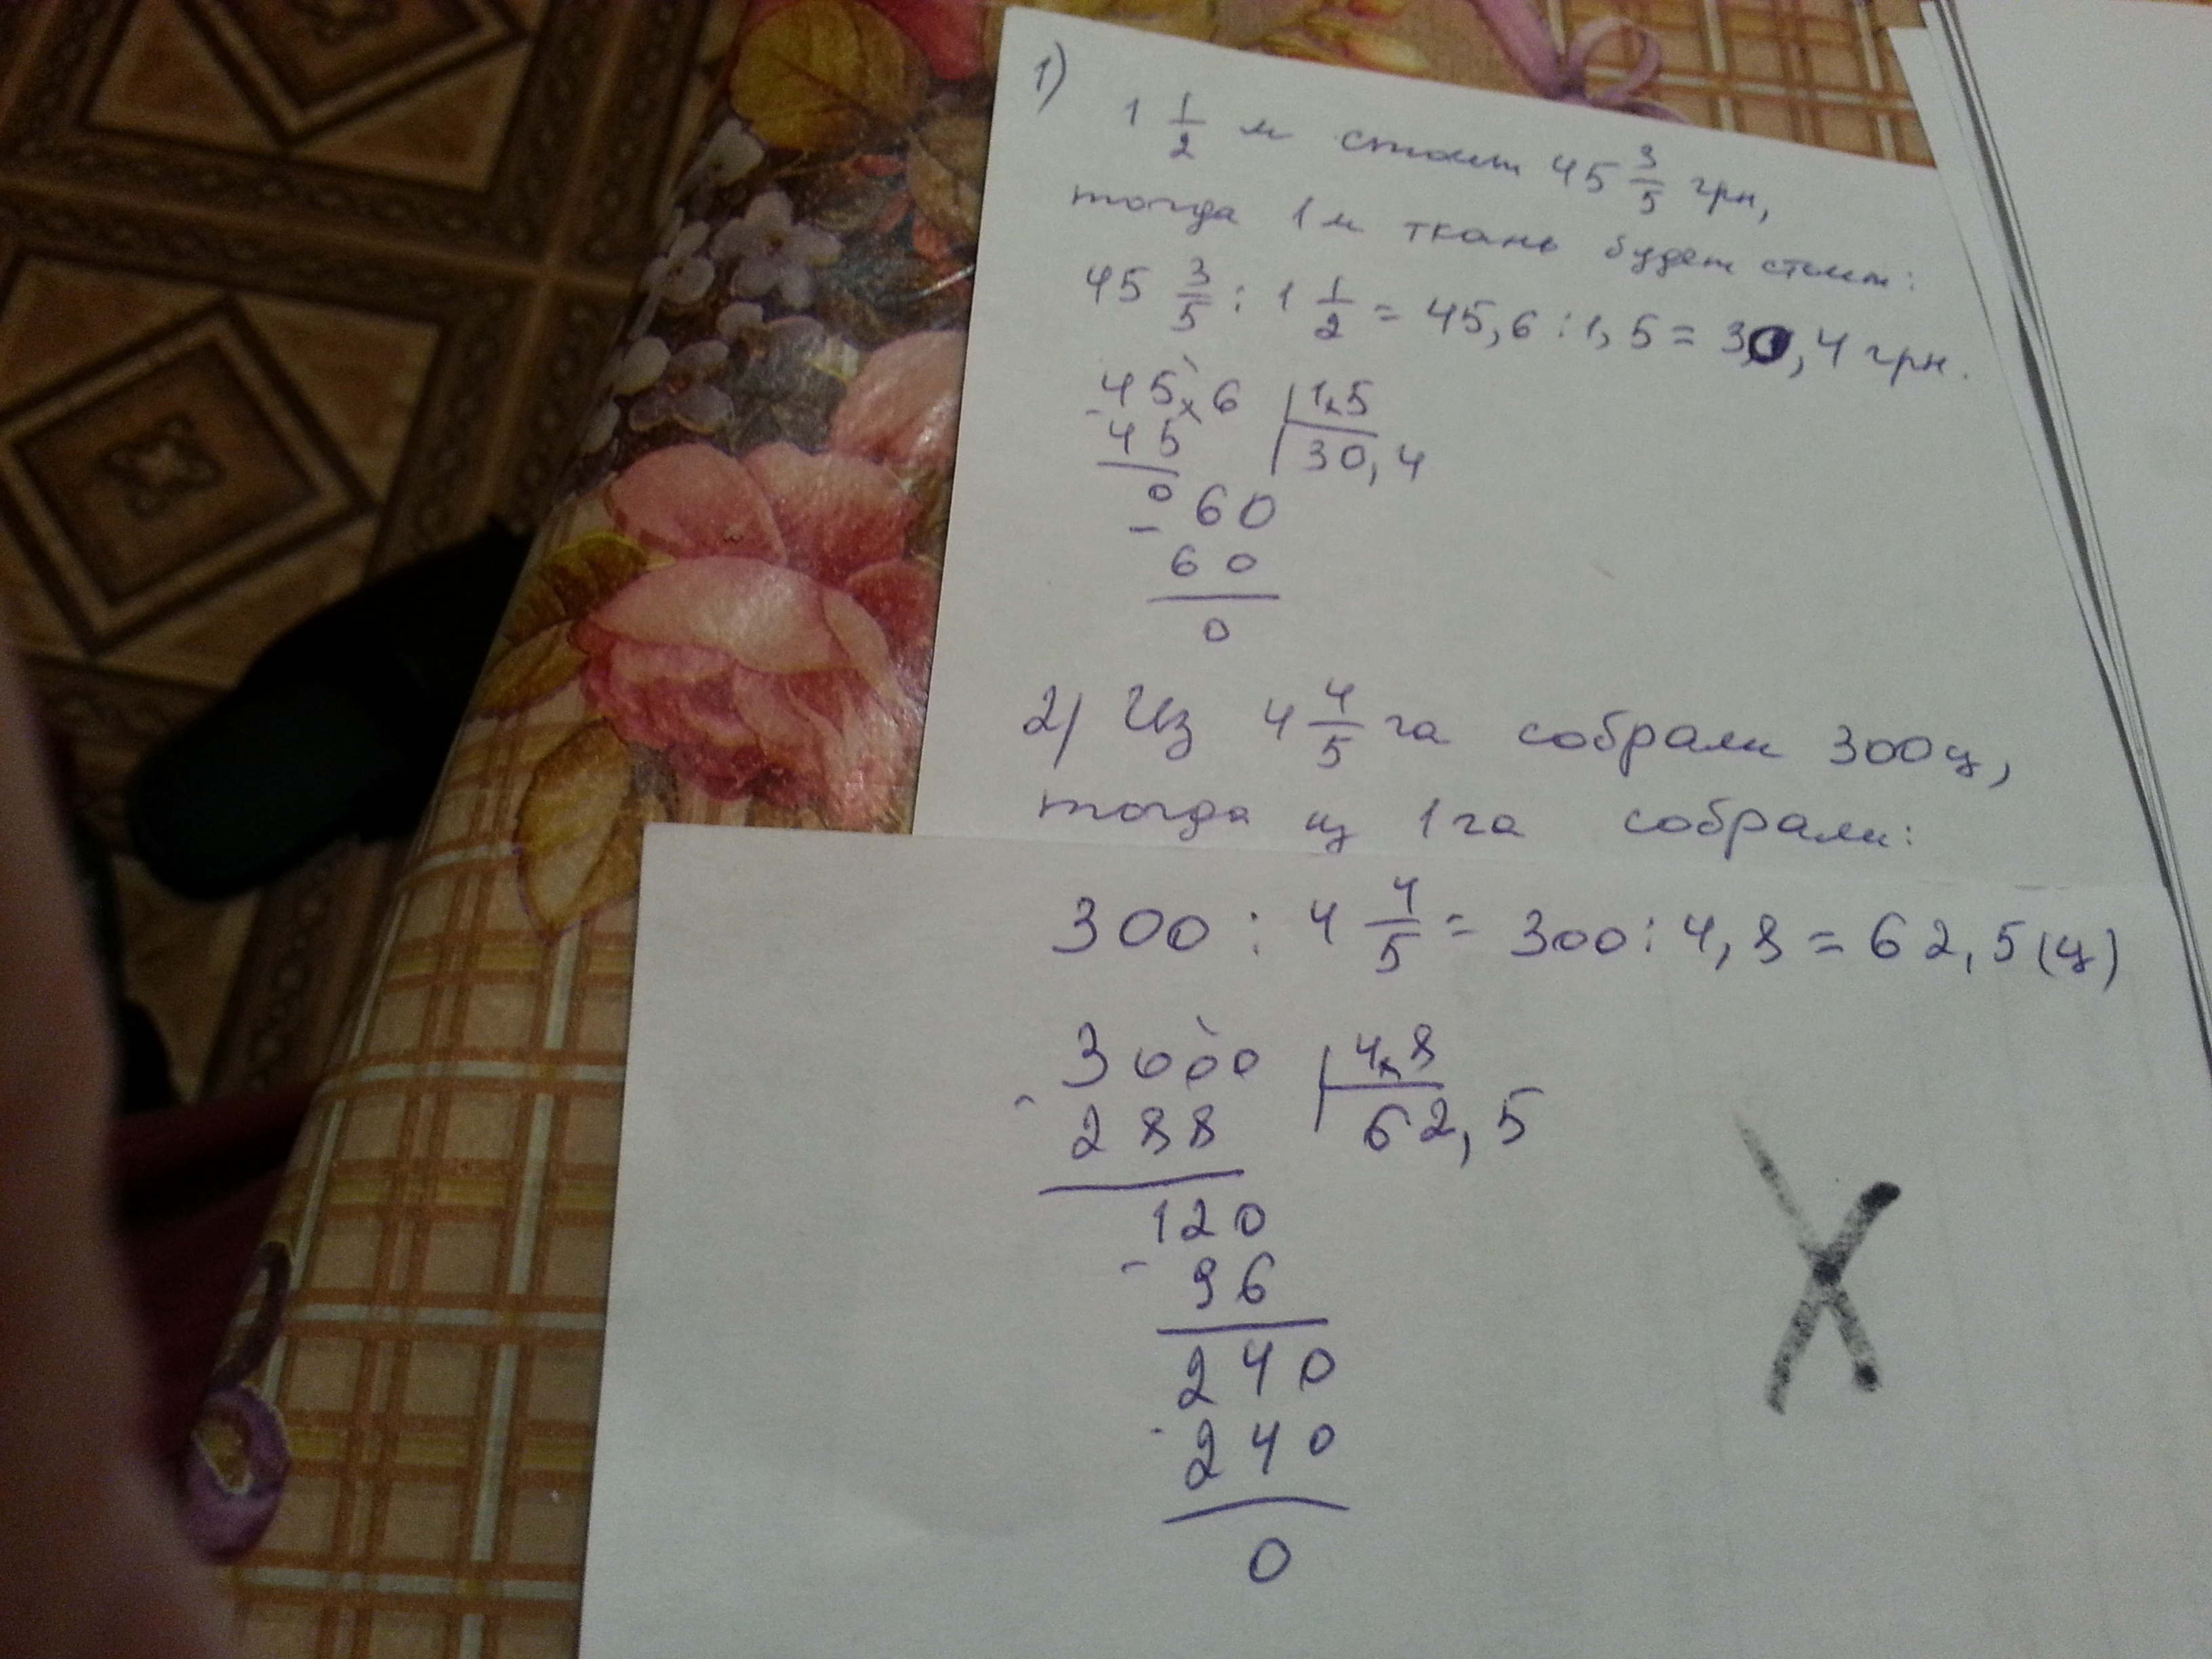 1)
1 1/2 м стоит 45 3/5 грн,
тогда 1 м ткань будет стоит:
45 3/5 : 1 1/2 = 45,6 : 1,5 = 30,4 грн.
45,6 | 1,5
- 45 | 30,4
0 60
- 60
0
2) Из 4 4/5 га собрали 300 ц,
тогда из 1 га собрали:
300 : 4 4/5 = 300 : 4,8 = 62,5 (ц)
3000 | 4,8
- 288 | 62,5
120
- 96
240
- 240
0
X